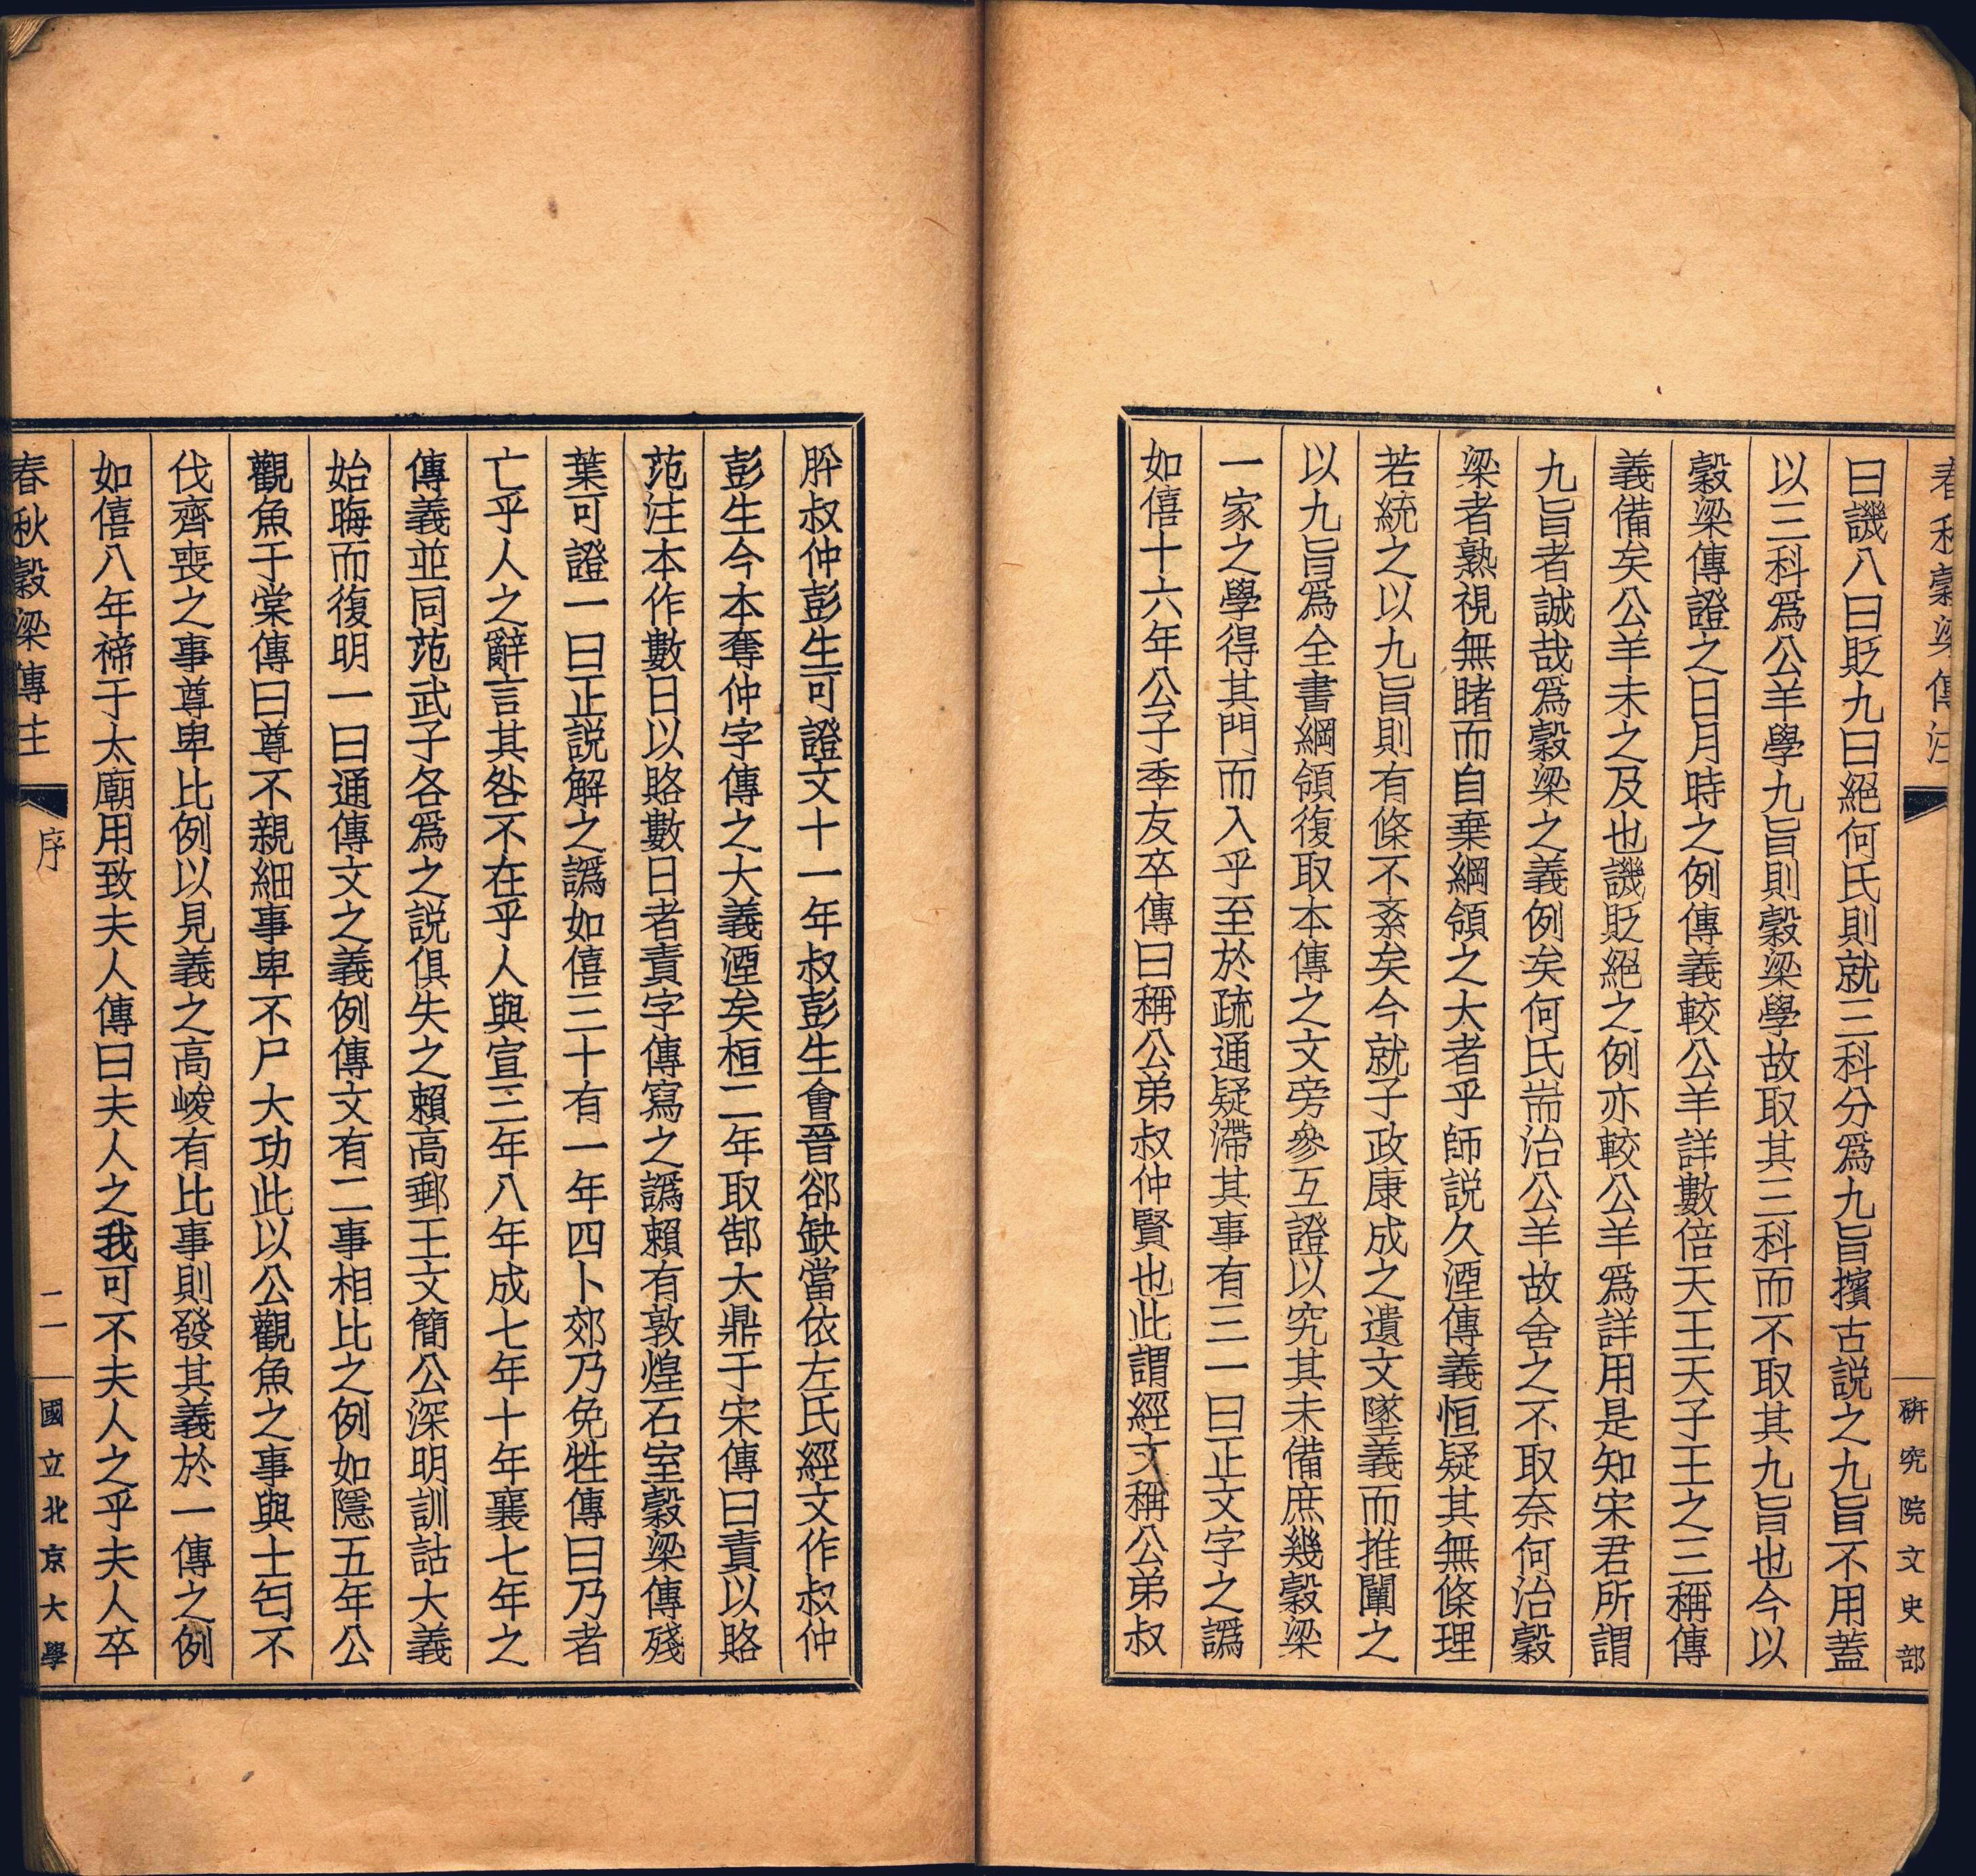 春秋穀梁傳注
研究院文史部
曰譏八曰貶九曰絕何氏則就三科分爲九旨擯古説之九旨不用蓋
以三科爲公羊學九旨則穀梁學故取其三科而不取其九旨也今以
穀梁傳證之日月時之例傳義較公羊詳數倍天王天子王之三稱傳
義備矣公羊未之及也譏貶絕之例亦較公羊爲詳用是知宋君所謂
九旨者誠哉爲穀梁之義例矣何氏耑治公羊故舍之不取奈何治穀
梁者熟視無睹而自棄綱領之大者乎師説久湮傳義恒疑其無條理
若統之以九旨則有條不紊矣今就子政康成之遺文墜義而推闡之
以九旨爲全書綱領復取本傳之文旁參互證以究其未備庶幾穀梁
一家之學得其門而入乎至於疏通疑滯其事有三一曰正文字之譌
如僖十六年公子季友卒傳曰稱公弟叔仲賢也此謂經文稱公弟叔
肸叔仲彭生可證文十一年叔彭生會晉郤缺當依左氏經文作叔仲
彭生今本奪仲字傳之大義湮矣桓二年取郜大鼎于宋傳曰責以賂
范注本作數日以賂數日者責字傳寫之譌賴有敦煌石室穀梁傳殘
葉可證一曰正説解之譌如僖三十有一年四卜郊乃免牲傳曰乃者
亡乎人之辭言其咎不在乎人與宣三年八年成七年十年襄七年之
傳義並同范武子各爲之説俱失之賴高郵王文簡公深明訓詁大義
始晦而復明一曰通傳文之義例傳文有二事相比之例如隱五年公
觀魚于棠傳曰尊不親細事卑不尸大功此以公觀魚之事與士匄不
伐齊喪之事尊卑比例以見義之高峻有比事則發其義於一傳之例
如僖八年禘于太廟用致夫人傳曰夫人之我可不夫人之乎夫人卒
春秋穀梁傳注
序
二
國立北京大學